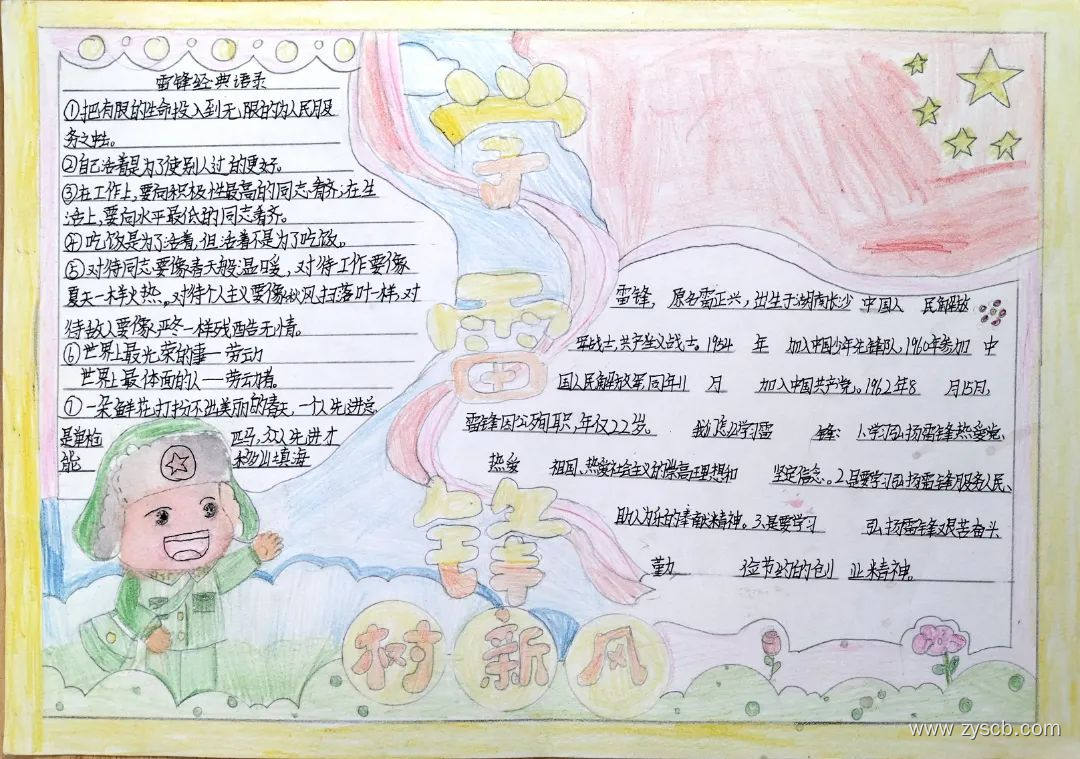 雷锋经典语录
①把有限的生命投入到无限的为人民服
务之中去。
②自己活着是为了使别人过的更好。
③在工作上,要向积极性最高的同志看齐;在生
活上,要向水平最低的同志看齐。
④吃饭是为了活着,但活着不是为了吃饭。
⑤对待同志要像春天般温暖,对待工作要像
夏天一样火热。对待个人主义要像秋风扫落叶一样,对
待敌人要像严冬一样残酷无情。
⑥世界上最光荣的事一劳动
世界上最体面的人——劳动者。
⑦一朵鲜花打扮不出美丽的春天,一个人先进总
是单枪 匹马,众人先进才
能 移山填海
学
雷
锋
树新风
雷锋,原名雷正兴,出生于湖南长沙 中国人 民解放
军战士,共产主义战士。1954 年 加入中国少年先锋队,1960年参加 中
国人民解放军同年11 月 加入中国共产党。1962年8 月15日,
雷锋因公殉职,年仅22岁。 我们怎么学习雷 锋: 1、学习弘扬雷锋热爱党、
热爱 祖国、热爱社会主义的崇高理想和 坚定信念。2.是要学习弘扬雷锋服务人民、
助人为乐的奉献精神。3.是要学习 弘扬雷锋艰苦奋斗
勤 俭节约的创 业精神。
www.zyscb.com